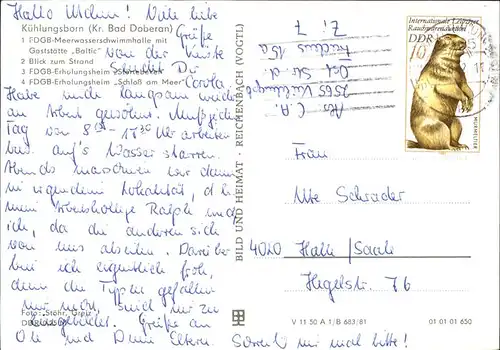 Hallo
Viele liebe
Grüße
Kühlungsborn (Kr. Bad Doberan)
1 FDGB-Meerwasserschwimmhalle mit
Gaststätte „Baltic"
2 Blick zum Strand
3 FDGB-Erholungsheim
4 FDGB-Erholungsheim „Schloß am Meer"
von der Küste
sendet Dir
Carola
Habe mich langsam wieder
an Arbeit gewöhnt.
Tag von 8 00 - 17 30 Uhr arbeiten
auf's Wasser starren.
Abends marschieren wir dann
in irgendeine Lokalität, d.h.
mein Arbeitskollege Ralph und
ich, da die anderen sich
von uns abseilen. Darüber
bin ich eigentlich froh,
denn die Typen gefallen
mir nicht, sind mir zu
eingebildet. Grüße an
und Deine Eltern. Schreib mir mal bitte!
Foto: Stöhr, Greiz
BILD UND HEIMAT · REICHENBACH (VOGTL)
V 11 50 A 1/B 683/81
01 01 01 650
Abs. C. A.
2565 Kühlungsb.
Ost Str. d.
Friedens 15a
Zi. 7
Internationale Leipziger
Rauchwarenauktion
DDR
10
MURMELTIER
Frau
Ute Schrader
4020 Halle/Saale
Hegelstr. 76